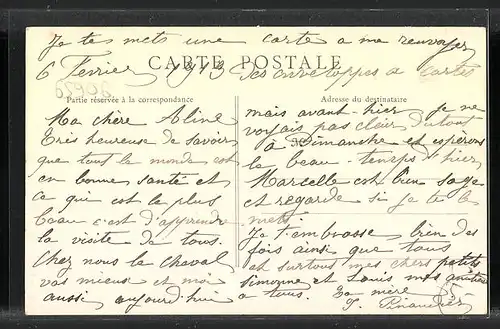 Je te mets une carte a me renvoyer
CARTE POSTALE
6 Fevrier 1913 des enveloppes a cartes
65906
Partie réservée à la correspondance
Adresse du destinataire
Ma chère Aline
Très heureuse de savoir
que tout le monde est
en bonne santé et
ce qui est le plus
beau c'est d'apprendre
la visite de tous.
Chez nous le cheval
vas mieux et moi
aussi aujourd'hui
mais avant-hier je ne
voyais pas clair du tout
a Dimanche et espérons
le beau-temps d'hier
Marcelle est bien sage
et regarde si je te le
mets
Je t'embrasse bien des
fois ainsi que tous
et surtous mes chers petits
simonne et Louis mes
a tous. Ta mère